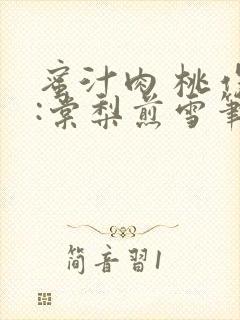 蜜汁肉桃作
:棠梨煎雪筆
简音習1